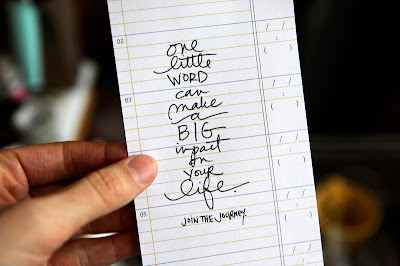 02
one
little
WORD
can
03
make
a
BIG
impact
on
your
life.
05
JOIN THE JOURNEY.
/ /
:
( )
/ /
:
( )
/ /
:
( )
/ /
:
( )
/ /